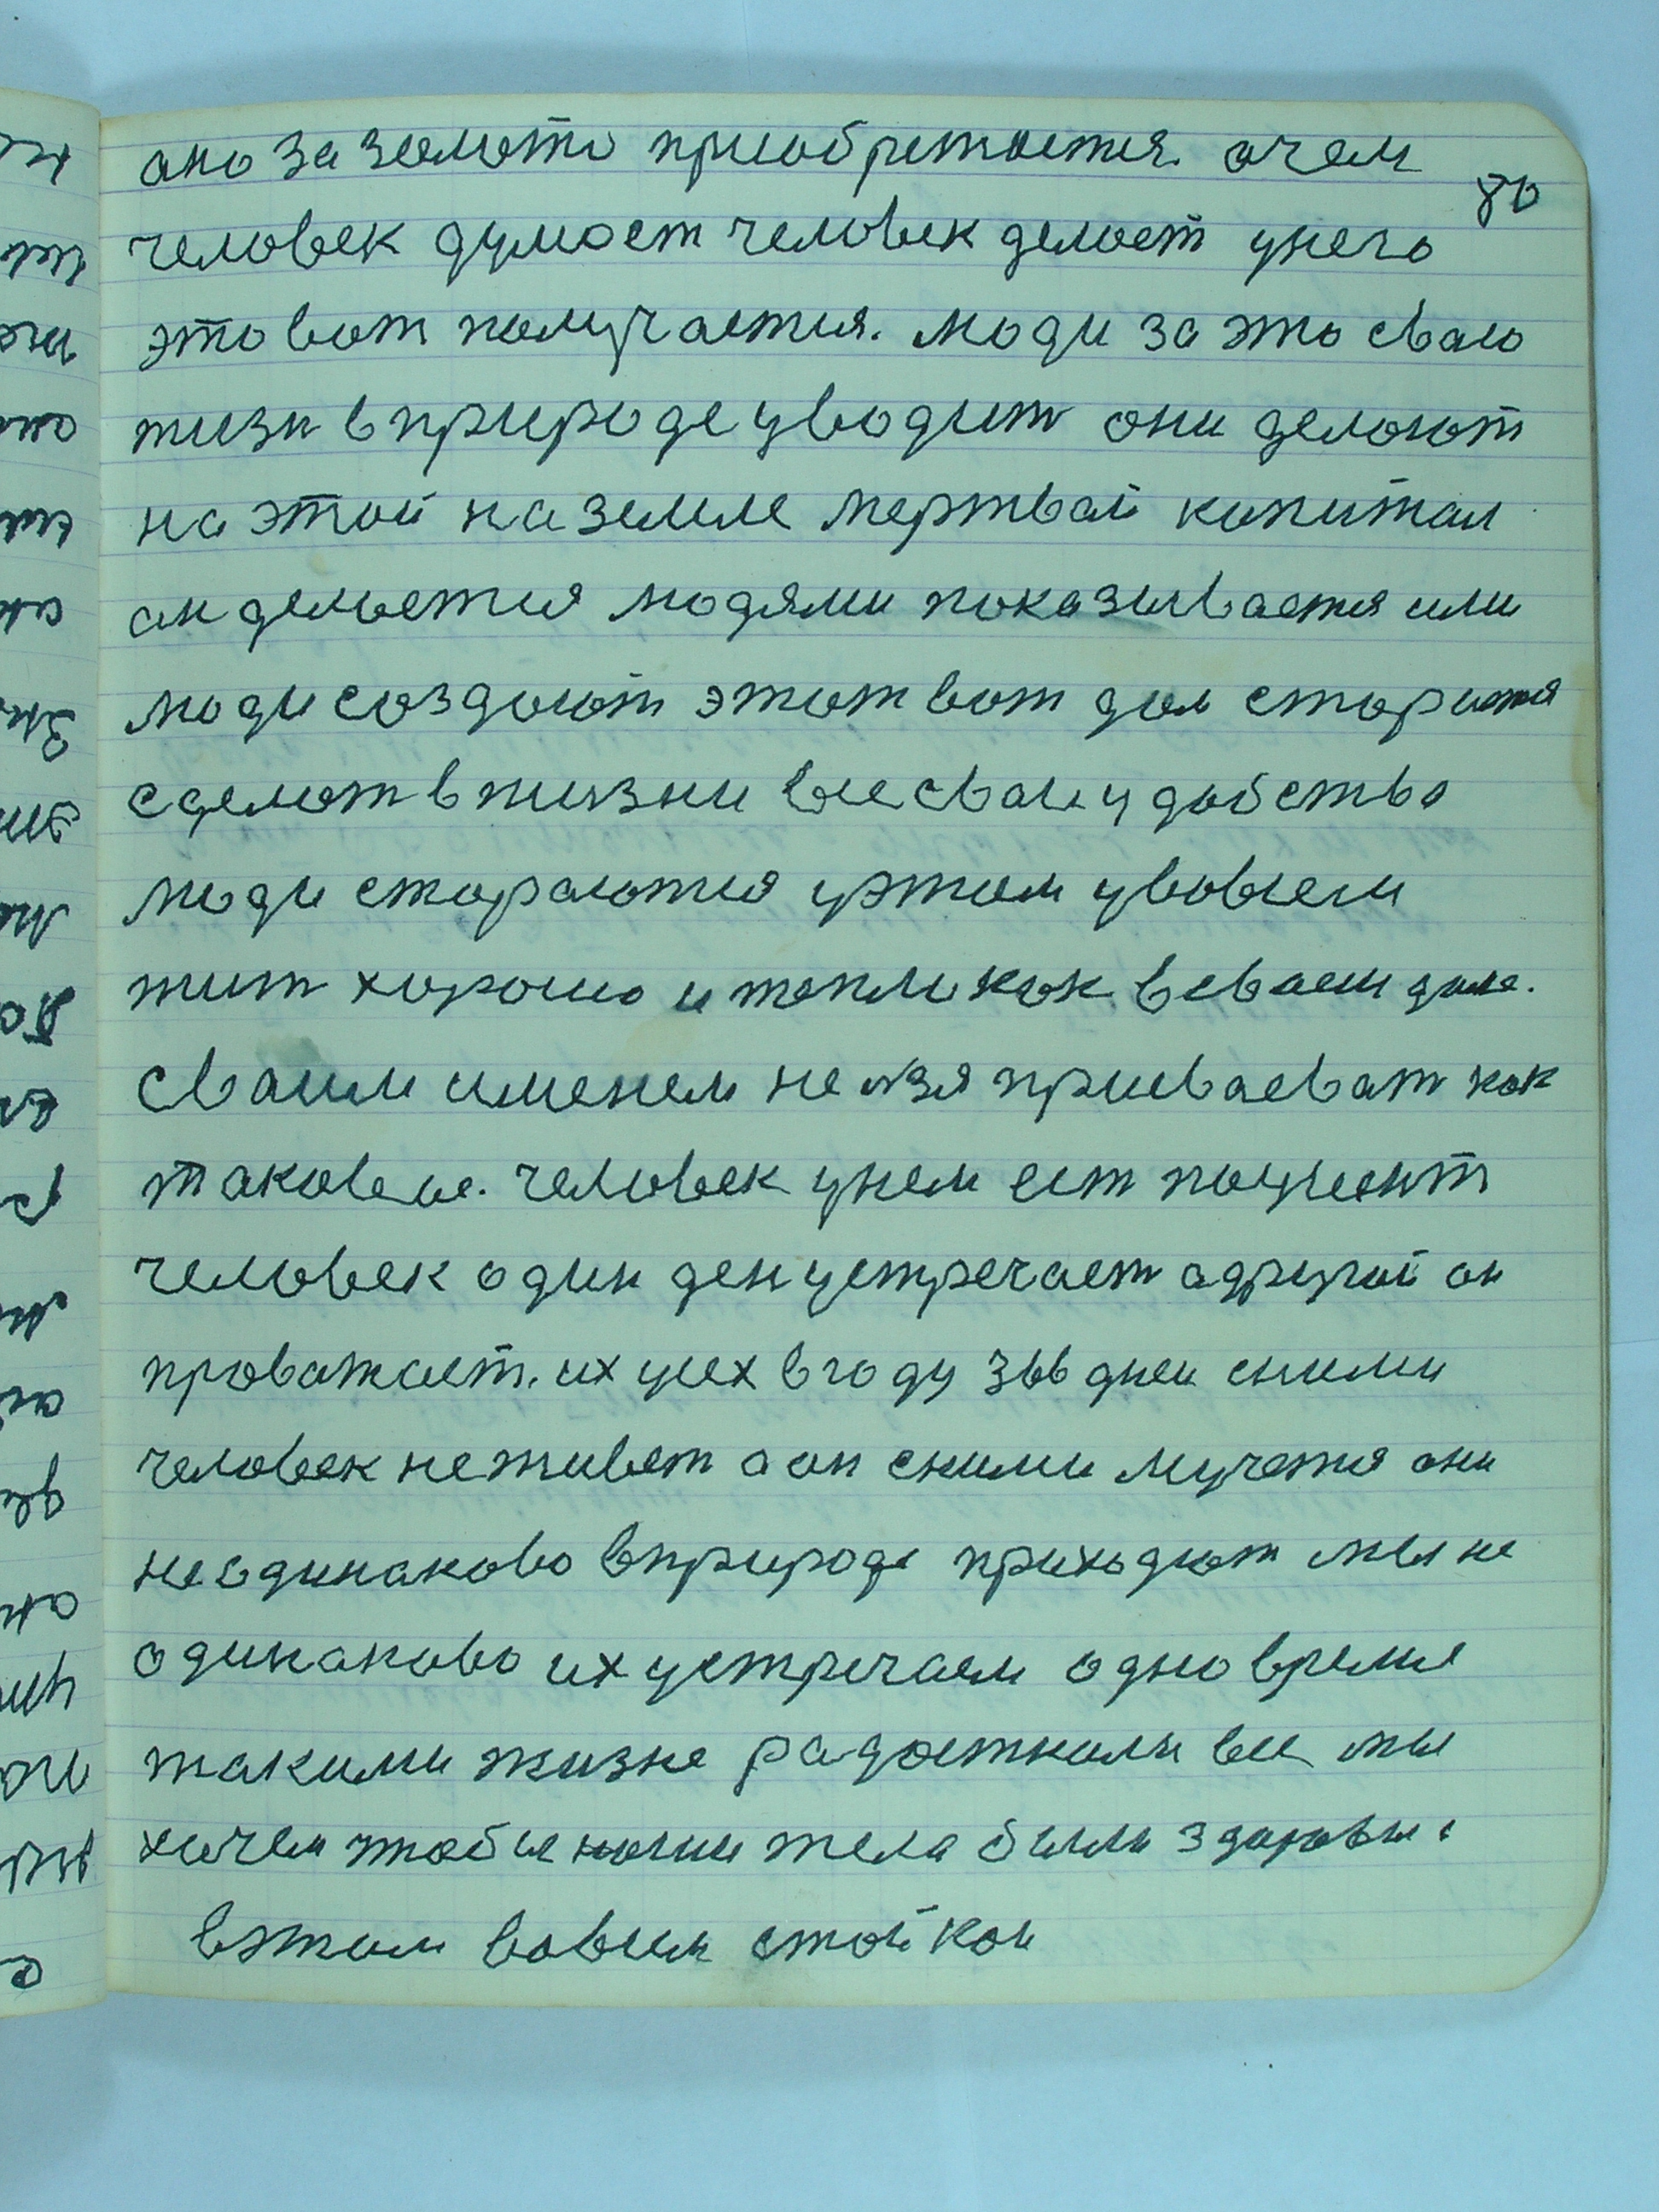 ано за золото приобретается. очем
80
человек думает человек делает унего
это вот получается. люди за это сваю
жизн в природе уводит они делают
на этой на земле мертвай капитал
ан делается людями показывается или
люди создают этот вот дом старается
сделат в жизни все сваи удобства
люди стараются уэтом увовсем
жит хорошо и тепло как всваем доме.
Сваим именем нелзя присваеват как
таковое. человек унем ест
человек один ден устречает адругой он
проважает. их усех вгоду 366 дней сними
человек не живет а он сними мучется они
неодинаково вприроде приходют мы не
одинаково их устречаем одно время
такими жизне радостными все мы
хочем чтобы наши тела были здоровы.
вэтом вовсем стойкои